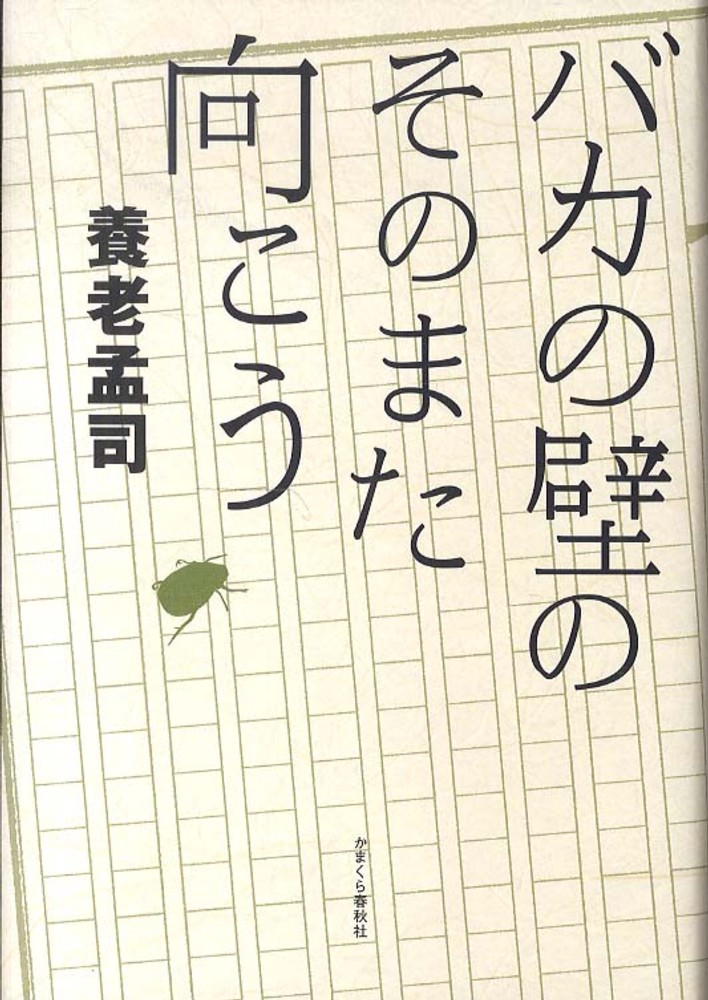 バカの壁の
そのまた
向こう
養老孟司
かまくら春秋社